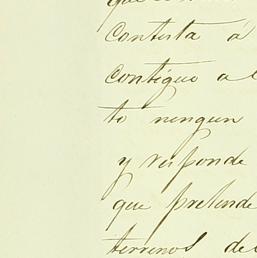 contesta á
contiguo a l
to ningun
y responde
que pretende
terrenos de